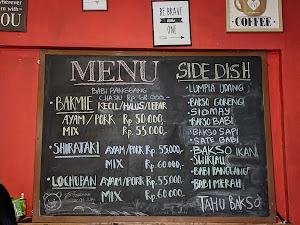 YOU
BE BRAVE
ONE
COFFEE
MENU
BABI PANGGANG
CHASIU Rp 68.000,-
• BAKMIE KECIL/HALUS/LEBAR
AYAM/PORK Rp. 50.000,-
MIX Rp. 55.000,-
• SHIRATAKI AYAM/PORK Rp. 55.000,-
MIX Rp. 60.000,-
• LOCUPAN AYAM/PORK Rp. 55.000,-
MIX Rp. 60.000,-
SIDE DISH
• LUMPIA UDANG
• BAKSO GORENG
• SIOMAY
• BAKSO BABI
• BAKSO SAPI
• SATE BABI
• BAKSO IKAN
• BABI PANGGANG
• BABI MERAH
TAHU BAKSO